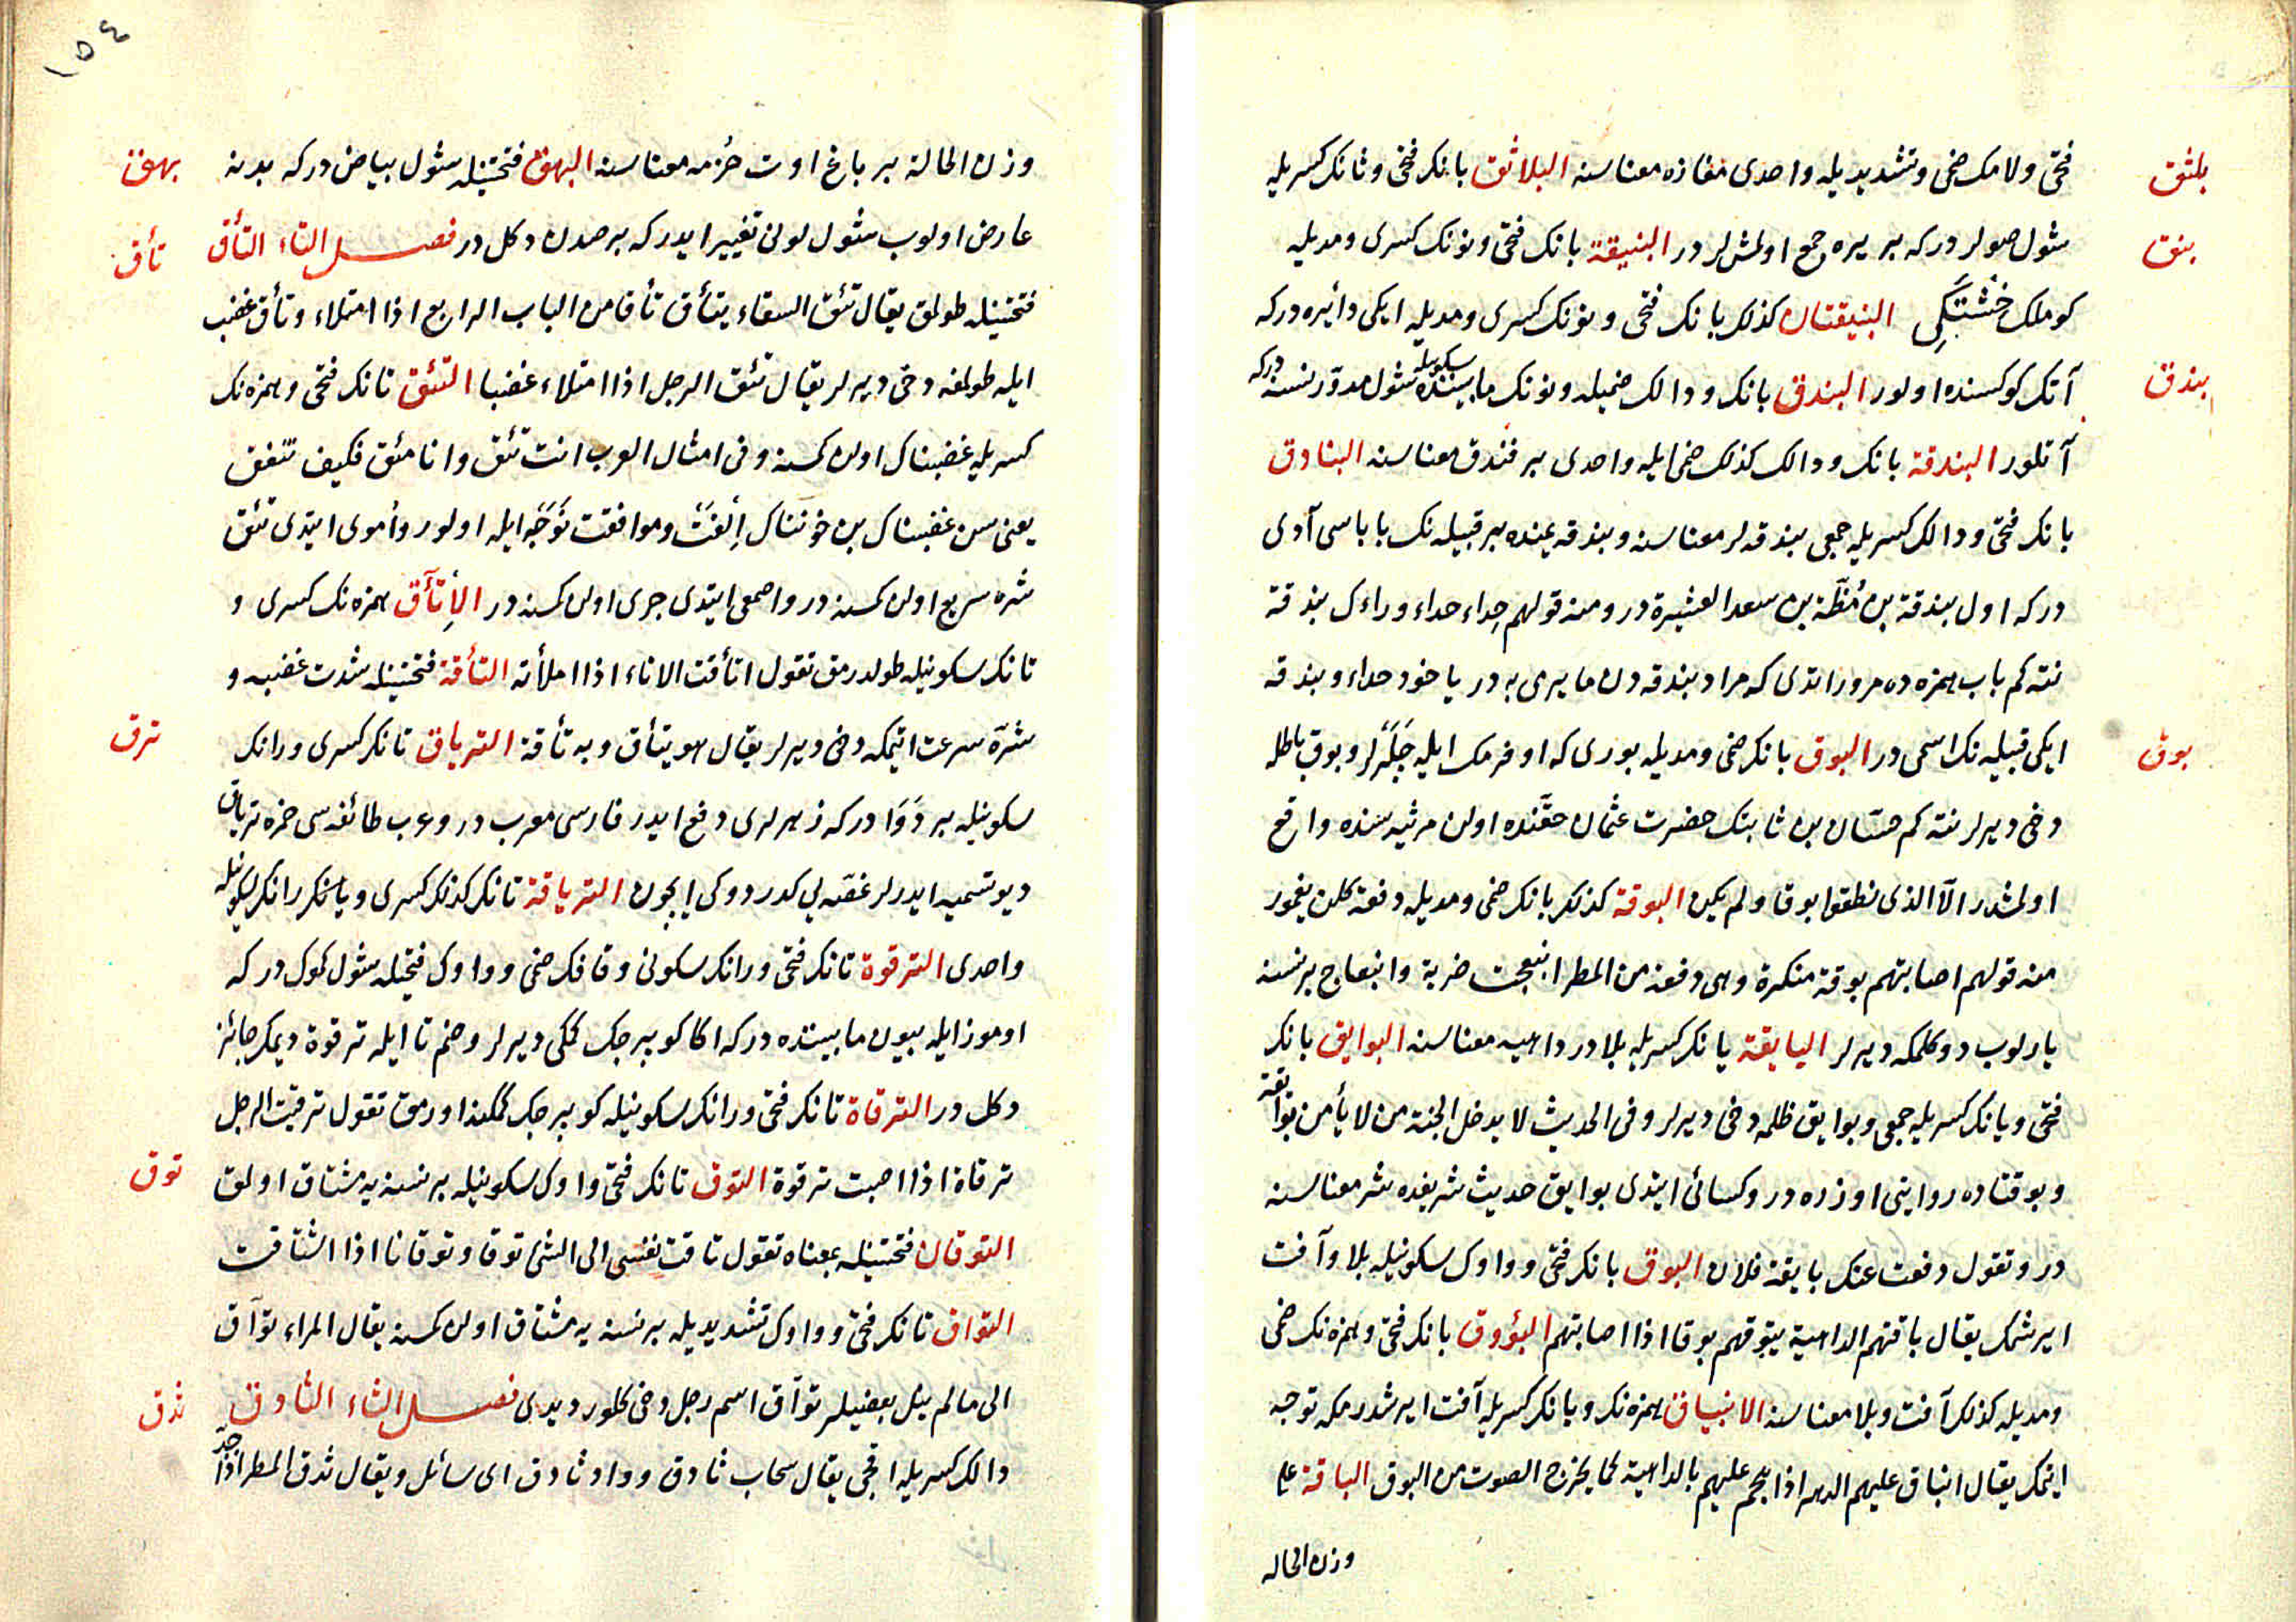 بلثق
فتحى ولامك ضمى وتشديديله واحدى مفازه معناسنه البلاثق بانك فتحى وثانك كسريله
بنق
شول صولر دركه بر يره جمع اولمشلر در البنيقة بانك فتحى ونونك كسرى ومديله
كوملك خشتكى البنيقتان كذلك بانك فتحى ونونك كسرى ومديله ايكى دائره دركه
بندق
آتك كوكسنده اولور البندق بانك ودالك ضميله ونونك مابينده سكونيله شول مدور نسنه دركه
آتلور البندقة بانك ودالك كذلك ضمى ايله واحدى بر فندق معناسنه البنادق
بانك فتحى ودالك كسريله جمعى بندقه لر معناسنه وبندقه يمنده بر قبيله نك باباسى آدى
دركه اول بندقة بن مظة بن سعد العشيرة در ومنه قولهم حداء حداء وراءك بندقة
نته كم باب همزه ده مرور اتدى كه مراد بندقه دن مايرمى به در ياخود حداء وبندقه
بوق
ايكى قبيله نك اسمى در البوق بانك ضمى ومديله بورى كه اوفرمك ايله چلرلر وبوق باطله
دخى ديرلر نته كم حسان بن ثابتك حضرت عثمان حقنده اولن مرثيه سنده واقع
اولمشدر الا الذى نطقوا بوقا ولم يكن البوقة كذلك بانك ضمى ومديله دفعة كلن يغمور
منه قولهم اصابتهم بوقة منكرة وهى دفعة من المطر انبعجت ضربة وانبعاج بر نسنه
يارلوب دوكلمكه ديرلر البايقة يانك كسريله بلادر داهيه معناسنه البوايق بانك
فتحى ويانك كسريله جمعى وبوايق ظلمه دخى ديرلر وفى الحديث لا يدخل الجنة من لا يأمن بوائقه
وبو قتاده روايتى اوزره در وكسائى ايتدى بوايق حديث شريفده شر معناسنه
در وتقول دفعت عنك بايقة فلان البوق بانك فتحى وواوك سكونيله بلا وآفت
ايرشمك يقال باقتهم الداهية تبوقهم بوقا اذا اصابتهم البؤوق بانك فتحى وهمزه نك ضمى
ومديله كذلك آفت وبلا معناسنه الانبياق همزه نك ويانك كسريله آفت ايرشدرمكه توجه
ايتمك يقال انباق عليهم الدهر اذا هجم عليهم بالداهية كما يخرج الصوت من البوق الباقة على
وزن الحاله
١٥٤
بهق
وزن الحالة بر باغ اوت حزمه معناسنه البهق فتحتينله شول بياض دركه بدنه
تأق
عارض اولوب شول لونى تغيير ايدر كه برصدن دكل در فصل التاء التأق
فتحتينله طولمق يقال تئق السقاء يتأق تأقا من الباب الرابع اذا امتلاء وتأق غضب
ايله طولمغه دخى ديرلر يقال تئق الرجل اذا امتلاء غضبا التئق تانك فتحى وهمزه نك
كسريله غضبناك اولن كمسنه وفى امثال العرب انت تئق وانا مئق فكيف نتفق
يعنى سن غضبناك بن خوننناك ألفت وموافقت نوجه ايله اولور وأموى ايتدى تئق
شره سريع اولن كمسنه در واصمعى ايتدى جرى اولن كمسنه در الإتآق همزه نك كسرى و
تانك سكونيله طولدرمق تقول اتأقت الاناء اذا املأته التأقة فتحتينله شدت غضبه و
ترق
شره سرعت ايتمكه دخى ديرلر يقال هو يتأق وبه تأقة الترياق تانك كسرى ورانك
سكونيله بر دوادر كه زهرلرى دفع ايدر فارسى معرب در وعرب طائفه سى خمره ترياق
ديو تسميه ايدرلر غصه يى كدردوكى ايچون الترياقة تانك كذلك كسرى ويانك رانك سكونيله
واحدى الترقوة تانك فتحى ورانك سكونى وقافك ضمى وواوك فتحيله شول كموك دركه
اوموز ايله بيون مابينده دركه اكا كوبرجك كمكى ديرلر وضم تا ايله ترقوة ديمك جائز
دكل در الترقاة تانك فتحى ورانك سكونيله كوبرجك كمكنه اورمق تقول ترقيت الرجل
توق
ترقاة اذا اصبت ترقوة التوق تانك فتحى واوك سكونيله بر نسنه يه مشتاق اولمق
التوقان فتحتينله بمعناه تقول تاقت نفسى الى الشئ توقا وتوقانا اذا اشتاقت
التواق تانك فتحى وواوك تشديديله بر نسنه يه مشتاق اولن كمسنه يقال المراء تواق
ثدق
الى مالم ينل بعضيلر تواق اسم رجل دخى كلور ديدى فصل الثاء الثادق
دالك كسريله اقجى يقال سحاب ثادق وواد ثادق اى سائل ويقال ثدق المطر اذا جد